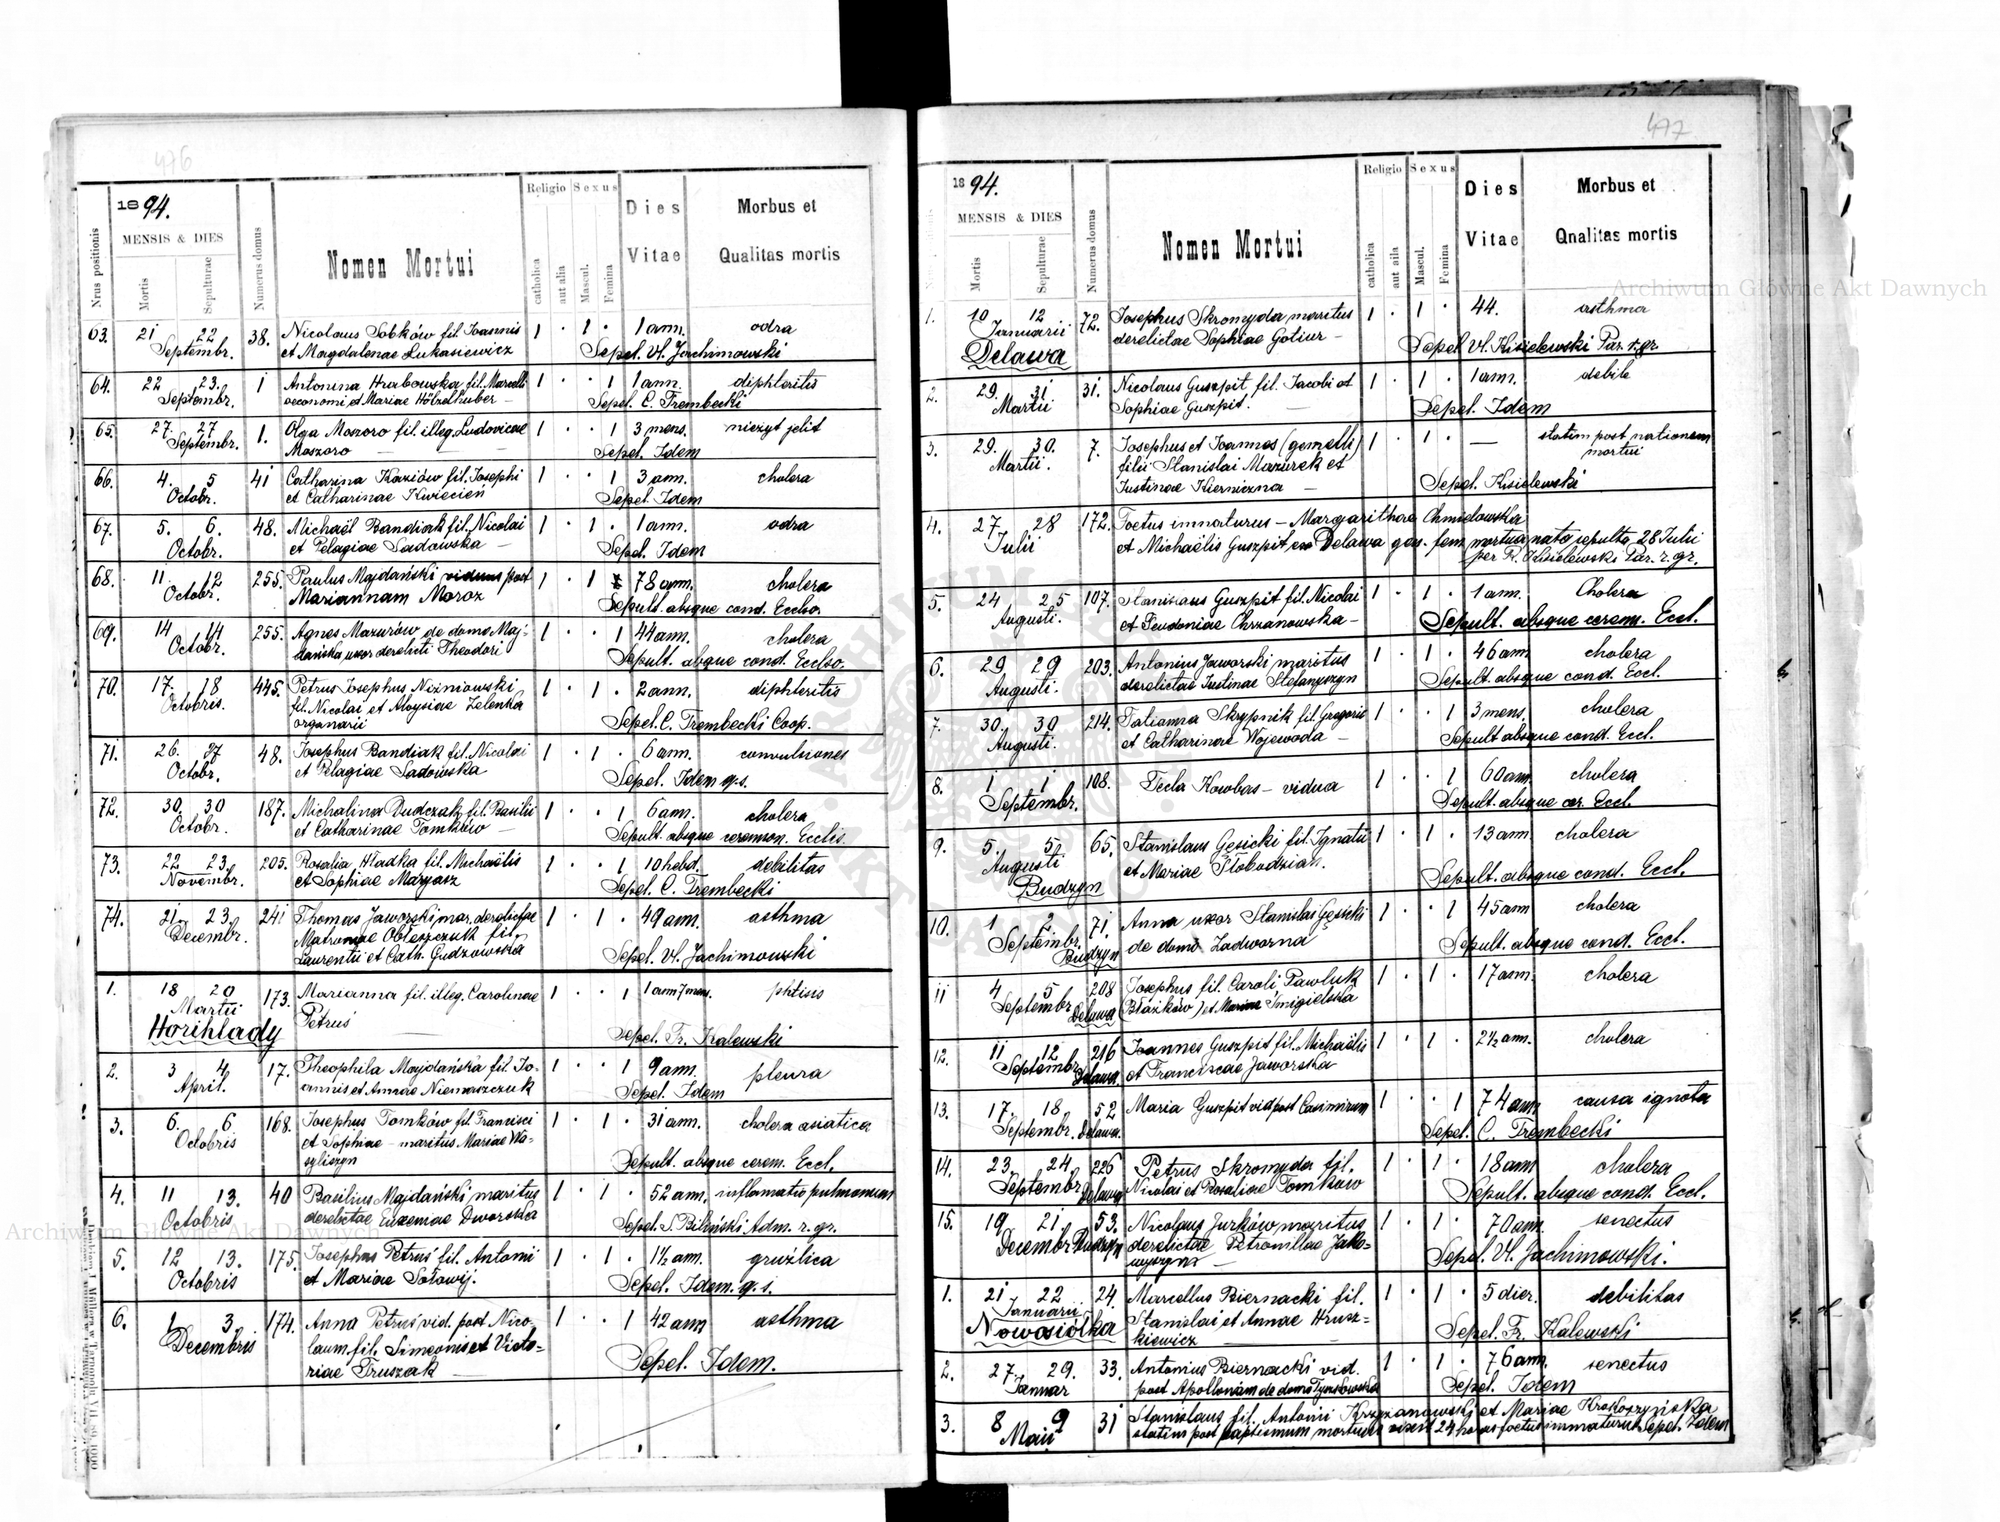 476
1894.
MENSIS & DIES
Nrus positionis
Mortis
Sepulturae
Numerus domus
Nomen Mortui
Religio
catholica
aut alia
Sexus
Mascul.
Femina
Dies
Vitae
Morbus et
Qualitas mortis
63. 21 22 38. Nicolaus Sobków fil. Joannis 1 · 1 · 1 ann. odra
Septembr. et Magdalenae Łukasiewicz Sepel. Vl. Jachimowski
64. 22 23. 1 Antonina Hrabowska fil. Marcelli 1 · · 1 1 ann. diphteritis
Septembr. oeconomi et Mariae Hölzelhuber Sepel. C. Trembecki
65. 27. 27 1. Olga Moszoro fil. illeg. Ludovicae 1 · · 1 3 mens. nieżyt jelit
Septembr. Moszoro — Sepel. Idem
66. 4. 5 41 Catharina Kaziów fil. Josephi 1 · · 1 3 ann. cholera
Octobr. et Catharinae Kwiecień Sepel. Idem
67. 5. 6. 48. Michaël Bandiak fil. Nicolai 1 · 1 · 1 ann. odra
Octobr. et Pelagiae Sadowska — Sepel. Idem
68. 11. 12 255. Paulus Majdański viduus post 1 · 1 78 ann. cholera
Octobr. Mariannam Moroz Sepult. absque cond. Eccles.
69. 14 14 255. Agnes Mazurów de domo Maj- 1 · · 1 44 ann. cholera
Octobr. dańska uxor derelicti Theodori Sepult. absque cond. Eccles.
70. 17. 18 445. Petrus Josephus Niżniowski 1 · 1 · 2 ann. diphteritis
Octobris. fil. Nicolai et Aloysiae Zelenka
organarii Sepel. C. Trembecki Coop.
71. 26. 27 48. Josephus Bandiak fil. Nicolai 1 · 1 · 6 ann. convulsiones
Octobr. et Pelagiae Sadowska Sepel. Idem q.s.
72. 30. 30 187. Michalina Dudczak fil. Basilii 1 · · 1 6 ann. cholera
Octobr. et Catharinae Tomków — Sepult. absque ceremon. Eccles.
73. 22 23. 205. Rosalia Hładka fil. Michaëlis 1 · · 1 10 hebd. debilitas
Novembr. et Sophiae Margasz Sepel. C. Trembecki
74. 21 23. 241 Thomas Jaworski mar. derelictae 1 · 1 · 49 ann. asthma
Decembr. Matronae Obleszczuk fil.
Laurentii et Cath. Gudzowska Sepel. Vl. Jachimowski
1. 18 20 173. Marianna fil. illeg. Carolinae 1 · · 1 1 ann 7 mens. phtisis
Martii Petruś
Horihlady Sepel. Fr. Kalewski
2. 3 4 17. Theophila Majdańska fil. Jo- 1 · · 1 9 ann. pleura
April. annis et Annae Niemaszczuk Sepel. Idem
3. 6. 6. 168. Josephus Tomków fil. Francisci 1 · 1 · 31 ann. cholera asiatica
Octobris et Sophiae — maritus Mariae Wa-
syliszyn Sepult. absque cerem. Eccl.
4. 11 13. 40 Basilius Majdański maritus 1 · 1 · 52 ann. inflamatio pulmonum
Octobris derelictae Eugeniae Dworska Sepel. S. Biliński Adm. r. gr.
5. 12 13. 175. Josephus Petruś fil. Antonii 1 · 1 · 1½ ann. gruźlica
Octobris et Mariae Sołowij. Sepel. Idem. q.s.
6. 1 3. 174. Anna Petruś vid. post Nico- 1 · · 1 42 ann asthma
Decembris laum fil. Simeonis et Victo-
riae Truszak — Sepel. Idem.
477
1894.
MENSIS & DIES
Mortis
Sepulturae
Numerus domus
Nomen Mortui
Religio
catholica
aut alia
Sexus
Mascul.
Femina
Dies
Vitae
Morbus et
Qnalitas mortis
1. 10 12 72. Josephus Skromyda maritus 1 · 1 · 44. asthma
Januarii derelictae Sophiae Gotiur —
Delawa Sepel. Vl. Kisielewski Par. r. gr.
2. 29. 31 31. Nicolaus Guszpit fil. Jacobi et 1 · 1 · 1 ann. debile
Martii Sophiae Guszpit. — Sepel. Idem
3. 29. 30. 7. Josephus et Joannes (gemelli) 1 · 1 · — statim post nationem
Martii. filii Stanislai Mazurek et mortui
Justinae Kierniczna — Sepel. Kisielewski
4. 27 28 172. Foetus immaturus — Margarithae Chmielowska
Julii et Michaëlis Guszpit ex Delawa gas. fem. mortua nata sepulta 28 Julii
per Vl. Kisielewski Par. r. gr.
5. 24 25 107. Stanislaus Guszpit fil. Nicolai 1 · 1 · 1 ann. Cholera
Augusti. et Eudoniae Chrzanowska — Sepult. absque cerem. Eccl.
6. 29 29 203. Antonius Jaworski maritus 1 · 1 · 46 ann cholera
Augusti. derelictae Justinae Stefanyszyn Sepult. absque cond. Eccl.
7. 30. 30 214. Tatianna Skrypnik fil. Gregorii 1 · · 1 3 mens. cholera
Augusti. et Catharinae Wojewoda — Sepult. absque cond. Eccl.
8. 1 1 108. Tecla Kowbas — vidua 1 · · 1 60 ann. cholera
Septembr. Sepult. absque cer. Eccl.
9. 5. 5. 65. Stanislaus Gęsicki fil. Ignatii 1 · 1 · 13 ann. cholera
Augusti et Mariae Słobodzian.
Budzyn Sepult. absque cond. Eccl.
10. 1 2. 71. Anna uxor Stanislai Gęsicki 1 · · 1 45 ann cholera
Septembr. de domo Zadworna
Budzyn Sepult. absque cond. Eccl.
11 4 5 208 Josephus fil. Caroli Pawluk 1 · 1 · 17 ann. cholera
Septembr. Delawa (Błażków) et Mariae Śmigielska
12. 11 12 216 Joannes Guszpit fil. Michaëlis 1 · 1 · 2½ ann. cholera
Septembr. Delawa et Franciscae Jaworska
13. 17. 18 52 Maria Guszpit vid post Casimirum 1 · · 1 74 ann causa ignota
Septembr. Delawa. Sepel. C. Trembecki
14. 23. 24 226 Petrus Skromyda fil. 1 · 1 · 18 ann cholera
Septembr. Delawa Nicolai et Rosaliae Tomków Sepult. absque cond. Eccl.
15. 19 21. 53. Nicolaus Jurków maritus 1 · 1 · 70 ann. senectus
Decembr. Budzyn derelictae Petronillae Jako-
wyszyn — Sepel. Vl. Jachimowski.
1. 21 22 24. Marcellus Biernacki fil. 1 · 1 · 5 dier. debilitas
Januarii Stanislai et Annae Hrusz-
Nowosiółka kiewicz — Sepel. Fr. Kalewski
2. 27 29. 33. Antonius Biernacki vid. 1 · 1 · 76 ann. senectus
Januar post Apolloniam de domo Sepel. Idem
3. 8 9 31 Stanislaus fil. Antonii Krzyżanowski et Mariae Krokoszyńska
Maii statim post baptismum mortuus vixit 24 horas foetus immaturus Sepel. Idem
Archiwum Główne Akt Dawnych
Archiwum Główne Akt Dawnych